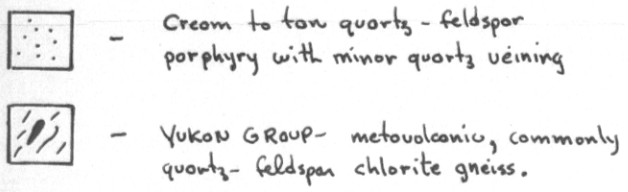 - Cream to tan quartz - feldspar
porphyry with minor quartz veining
- YUKON GROUP - metavolcanic, commonly
quartz - feldspar chlorite gneiss.